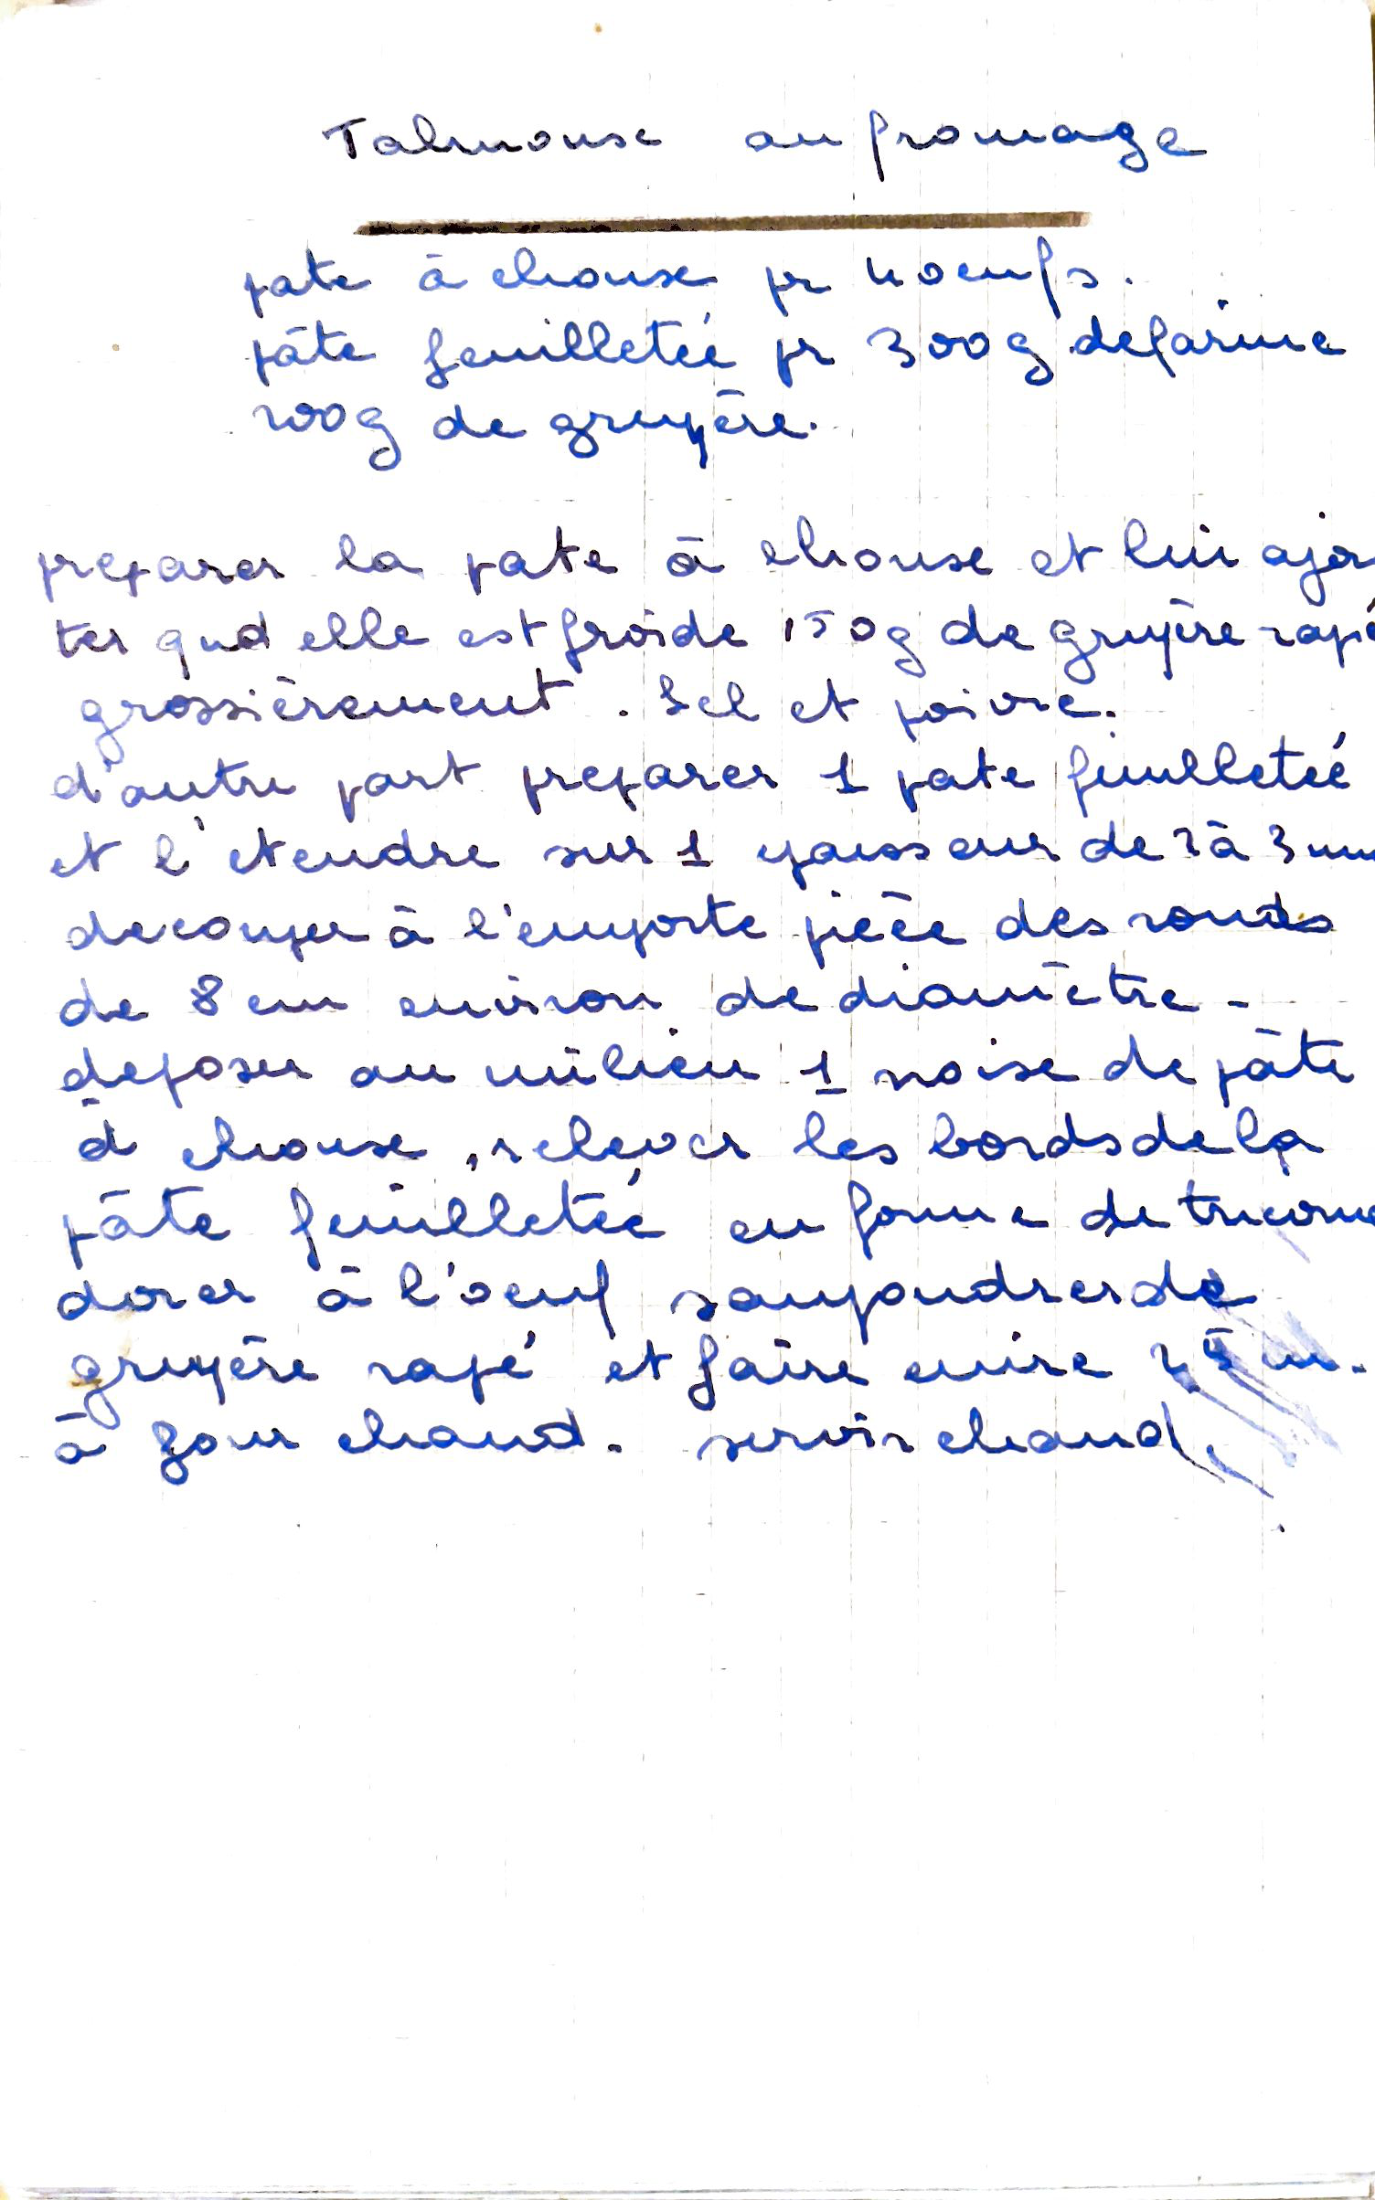 Talmouse au fromage
pate à choux pr 4 oeufs.
pâte feuilletée pr 300g de farine
200g de gruyère.
preparer la pate à choux et lui ajou
ter qud elle est froide 150g de gruyère rapé
grossièrement. Sel et poivre.
d'autre part preparer 1 pate feuilletée
et l'etendre sur 1 epaisseur de 2 à 3 mm
decouper à l'emporte pièce des ronds
de 8 cm environ de diamètre -
deposer au milieu 1 noix de pâte
à choux, relever les bords de la
pâte feuilletée en forme de tricorne
dorer à l'oeuf saupoudrer de
gruyère rapé et faire cuire 25 m.
à four chaud. servir chaud.